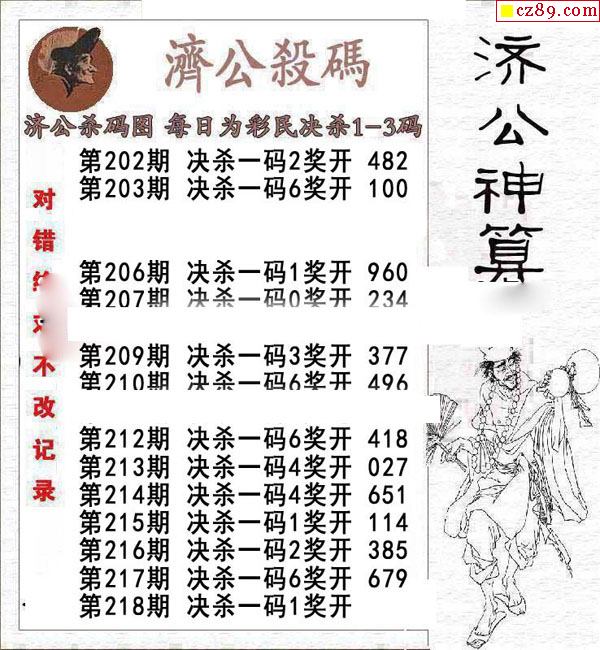 cz89.com
濟公殺碼
济公杀码图 每日为彩民决杀1-3码
第202期 决杀一码2奖开 482
第203期 决杀一码6奖开 100
第206期 决杀一码1奖开 960
第207期 决杀一码0奖开 234
第209期 决杀一码3奖开 377
第210期 决杀一码6奖开 496
第212期 决杀一码6奖开 418
第213期 决杀一码4奖开 027
第214期 决杀一码4奖开 651
第215期 决杀一码1奖开 114
第216期 决杀一码2奖开 385
第217期 决杀一码6奖开 679
第218期 决杀一码1奖开
对错
不改记录
济公神算